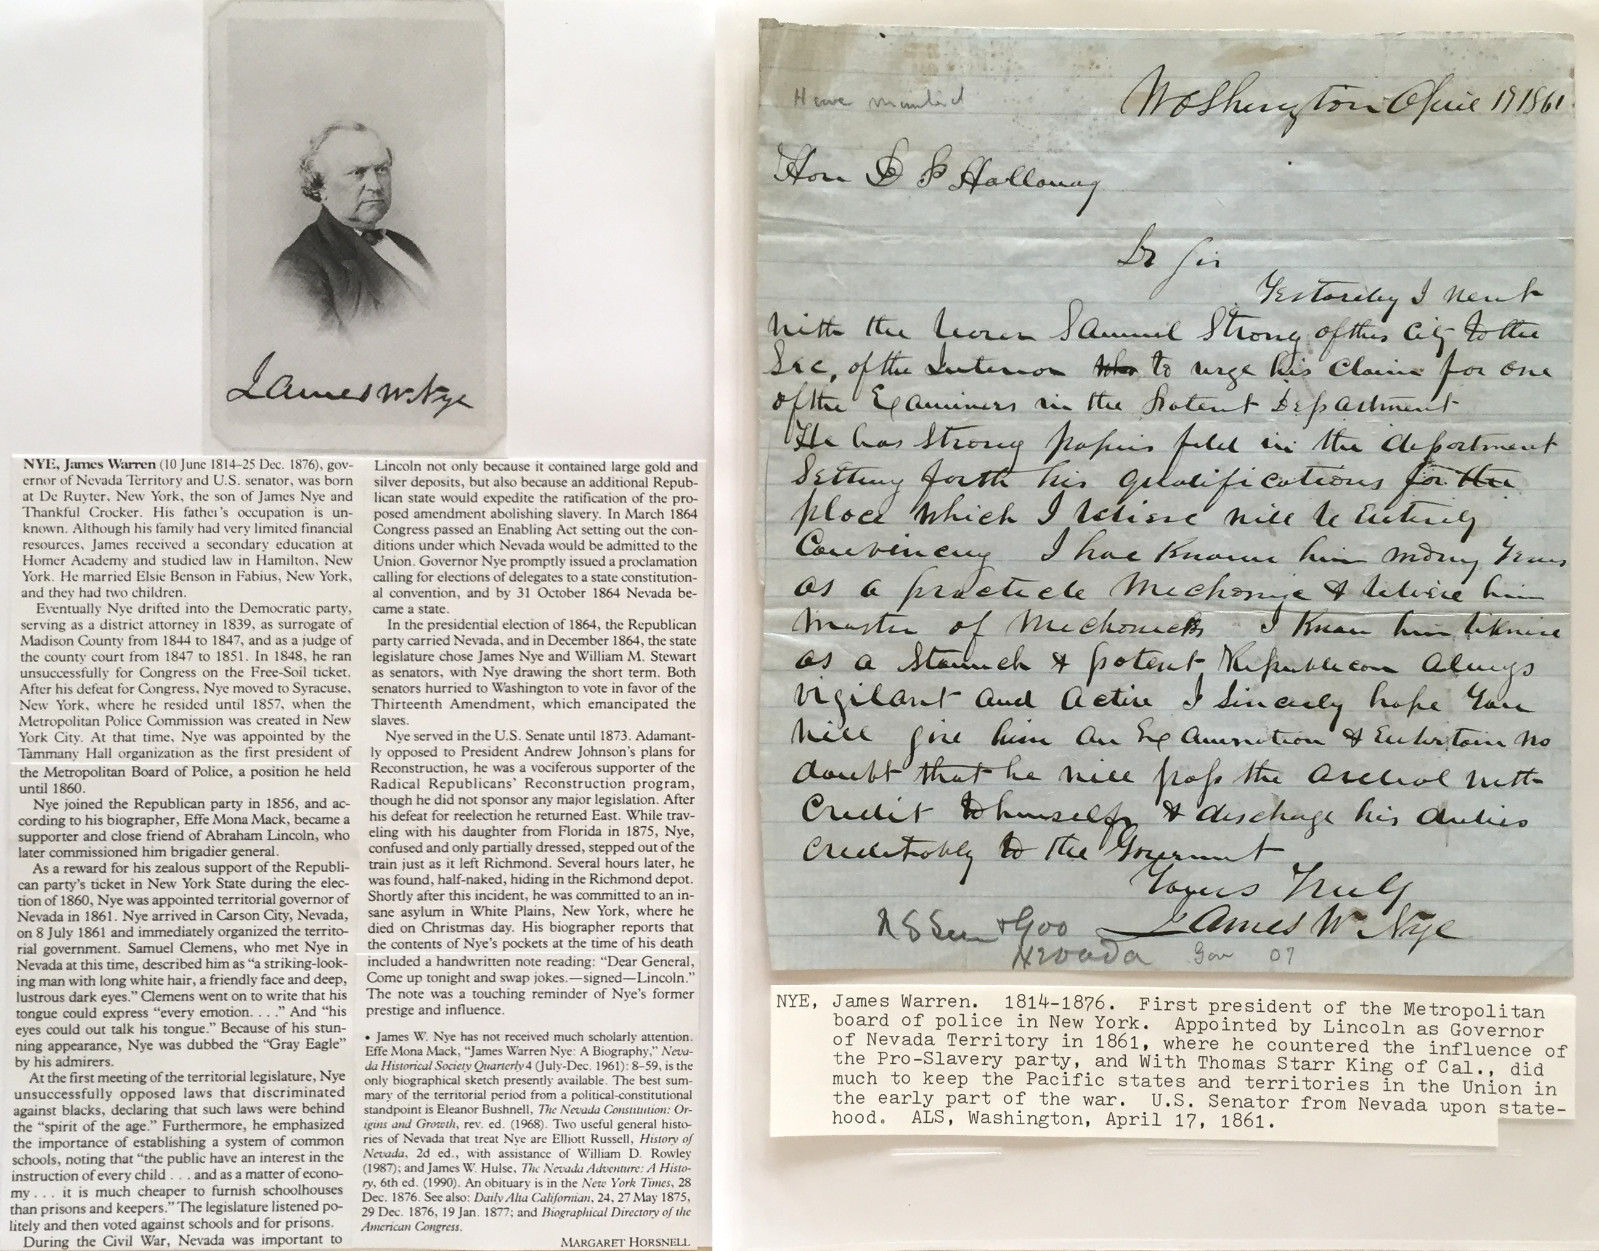 James W. Nye
NYE, James Warren (10 June 1814–25 Dec. 1876), gov-
ernor of Nevada Territory and U.S. senator, was born
at De Ruyter, New York, the son of James Nye and
Thankful Crocker. His father's occupation is un-
known. Although his family had very limited financial
resources, James received a secondary education at
Homer Academy and studied law in Hamilton, New
York. He married Elsie Benson in Fabius, New York,
and they had two children.
Eventually Nye drifted into the Democratic party,
serving as a district attorney in 1839, as surrogate of
Madison County from 1844 to 1847, and as a judge of
the county court from 1847 to 1851. In 1848, he ran
unsuccessfully for Congress on the Free-Soil ticket.
After his defeat for Congress, Nye moved to Syracuse,
New York, where he resided until 1857, when the
Metropolitan Police Commission was created in New
York City. At that time, Nye was appointed by the
Tammany Hall organization as the first president of
the Metropolitan Board of Police, a position he held
until 1860.
Nye joined the Republican party in 1856, and ac-
cording to his biographer, Effe Mona Mack, became a
supporter and close friend of Abraham Lincoln, who
later commissioned him brigadier general.
As a reward for his zealous support of the Republi-
can party's ticket in New York State during the elec-
tion of 1860, Nye was appointed territorial governor of
Nevada in 1861. Nye arrived in Carson City, Nevada,
on 8 July 1861 and immediately organized the territo-
rial government. Samuel Clemens, who met Nye in
Nevada at this time, described him as "a striking-look-
ing man with long white hair, a friendly face and deep,
lustrous dark eyes." Clemens went on to write that his
tongue could express "every emotion. . . ." And "his
eyes could out talk his tongue." Because of his stun-
ning appearance, Nye was dubbed the "Gray Eagle"
by his admirers.
At the first meeting of the territorial legislature, Nye
unsuccessfully opposed laws that discriminated
against blacks, declaring that such laws were behind
the "spirit of the age." Furthermore, he emphasized
the importance of establishing a system of common
schools, noting that "the public have an interest in the
instruction of every child . . . and as a matter of econo-
my . . . it is much cheaper to furnish schoolhouses
than prisons and keepers." The legislature listened po-
litely and then voted against schools and for prisons.
During the Civil War, Nevada was important to
Lincoln not only because it contained large gold and
silver deposits, but also because an additional Repub-
lican state would expedite the ratification of the pro-
posed amendment abolishing slavery. In March 1864
Congress passed an Enabling Act setting out the con-
ditions under which Nevada would be admitted to the
Union. Governor Nye promptly issued a proclamation
calling for elections of delegates to a state constitution-
al convention, and by 31 October 1864 Nevada be-
came a state.
In the presidential election of 1864, the Republican
party carried Nevada, and in December 1864, the state
legislature chose James Nye and William M. Stewart
as senators, with Nye drawing the short term. Both
senators hurried to Washington to vote in favor of the
Thirteenth Amendment, which emancipated the
slaves.
Nye served in the U.S. Senate until 1873. Adamant-
ly opposed to President Andrew Johnson's plans for
Reconstruction, he was a vociferous supporter of the
Radical Republicans' Reconstruction program,
though he did not sponsor any major legislation. After
his defeat for reelection he returned East. While trav-
eling with his daughter from Florida in 1875, Nye,
confused and only partially dressed, stepped out of the
train just as it left Richmond. Several hours later, he
was found, half-naked, hiding in the Richmond depot.
Shortly after this incident, he was committed to an in-
sane asylum in White Plains, New York, where he
died on Christmas day. His biographer reports that
the contents of Nye's pockets at the time of his death
included a handwritten note reading: "Dear General,
Come up tonight and swap jokes.—signed—Lincoln."
The note was a touching reminder of Nye's former
prestige and influence.
• James W. Nye has not received much scholarly attention.
Effe Mona Mack, "James Warren Nye: A Biography," Neva-
da Historical Society Quarterly 4 (July-Dec. 1961): 8–59, is the
only biographical sketch presently available. The best sum-
mary of the territorial period from a political-constitutional
standpoint is Eleanor Bushnell, The Nevada Constitution: Or-
igins and Growth, rev. ed. (1968). Two useful general histo-
ries of Nevada that treat Nye are Elliott Russell, History of
Nevada, 2d ed., with assistance of William D. Rowley
(1987); and James W. Hulse, The Nevada Adventure: A Histo-
ry, 6th ed. (1990). An obituary is in the New York Times, 28
Dec. 1876. See also: Daily Alta Californian, 24, 27 May 1875,
29 Dec. 1876, 19 Jan. 1877; and Biographical Directory of the
American Congress.
MARGARET HORSNELL
Washington April 17 1861
Hon D P Holloway
Dr Sir
Yesterday I went
with the bearer Samuel Strong of this City to the
Sec, of the Interior to urge his claim for one
of the Examiners in the Patent Department
He has strong papers filed in the department
Setting forth his qualifications for the
place which I believe will be entirely
Convincing I have known him many years
as a practicle Mechanic & believe him
Master of Mechanicks I know him likewise
as a staunch & potent Republican always
vigilant and active I sincerely hope you
will give him an Examination & Entertain no
doubt that he will pass the ordeal with
Credit to himself & discharge his duties
Creditably to the Government
Yours Truly
James W Nye
U S Sen & Gov
Nevada
Gov 07
NYE, James Warren. 1814-1876. First president of the Metropolitan
board of police in New York. Appointed by Lincoln as Governor
of Nevada Territory in 1861, where he countered the influence of
the Pro-Slavery party, and With Thomas Starr King of Cal., did
much to keep the Pacific states and territories in the Union in
the early part of the war. U.S. Senator from Nevada upon state-
hood. ALS, Washington, April 17, 1861.